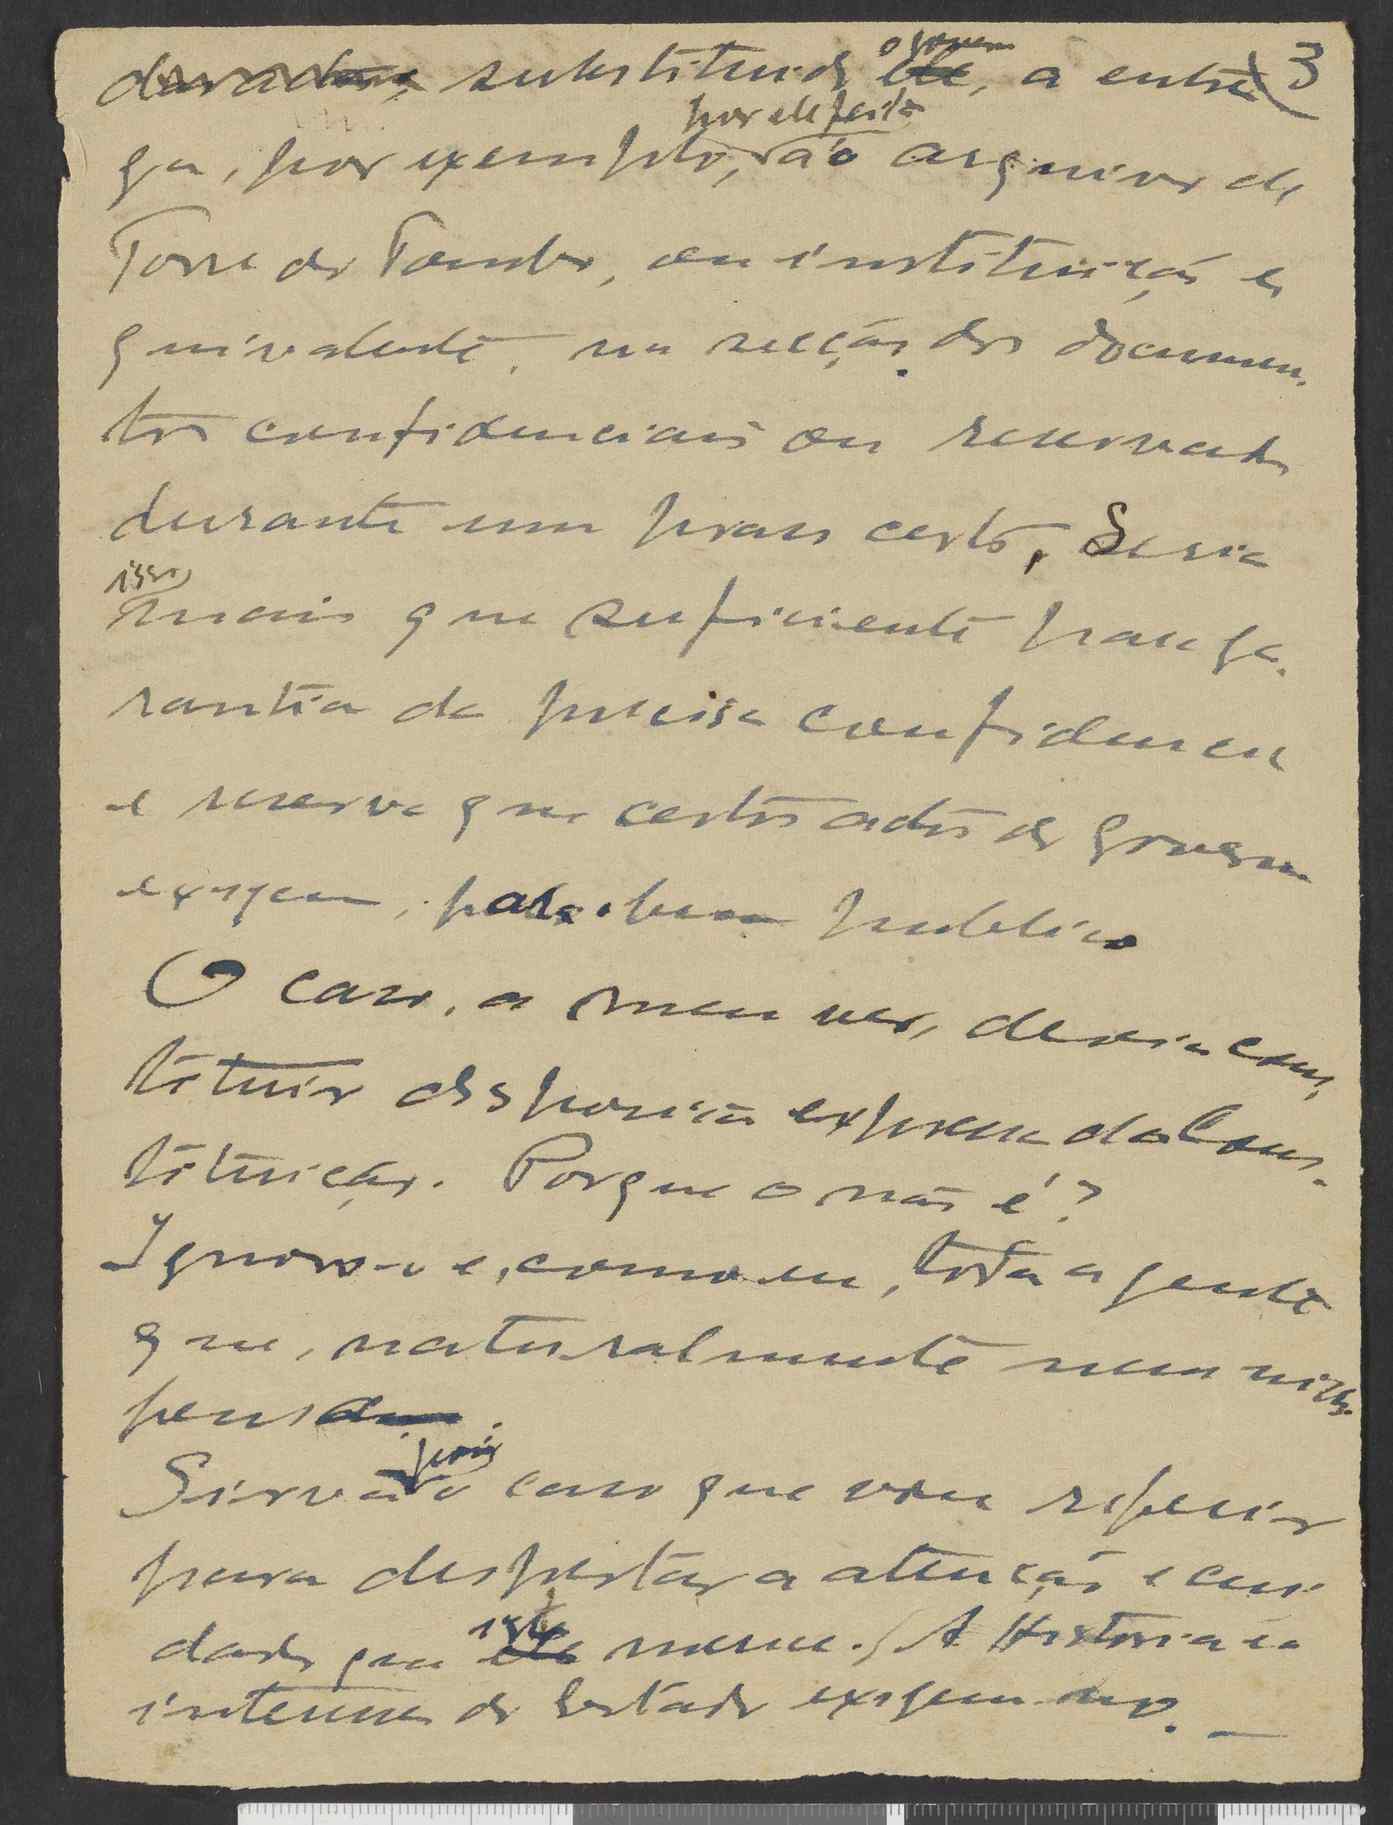 3
substituido o governo, a entre
ga, por exemplo, por ele feita ao arquivo da
Torre do Tombo, ou instituição e
quivalente, na secção dos documen-
tos confidenciais ou reservados
durante um prazo certo. Seria
isso mais que suficiente para ga-
rantia da precisa confidencia
e reserva que certos actos do governo
exigem, para bem publico
O caso, a meu ver, devia cons-
tituir disposição expressa da Cons-
tituição. Porque o não é?
Ignora-o e, como eu, toda a gente
que, naturalmente nem nisso
pensou.
Sirva pois o caso que vou referir
para despertar a atenção e cui
dado que isto merece. / A Historia e o
interesse do Estado exigem-no. —